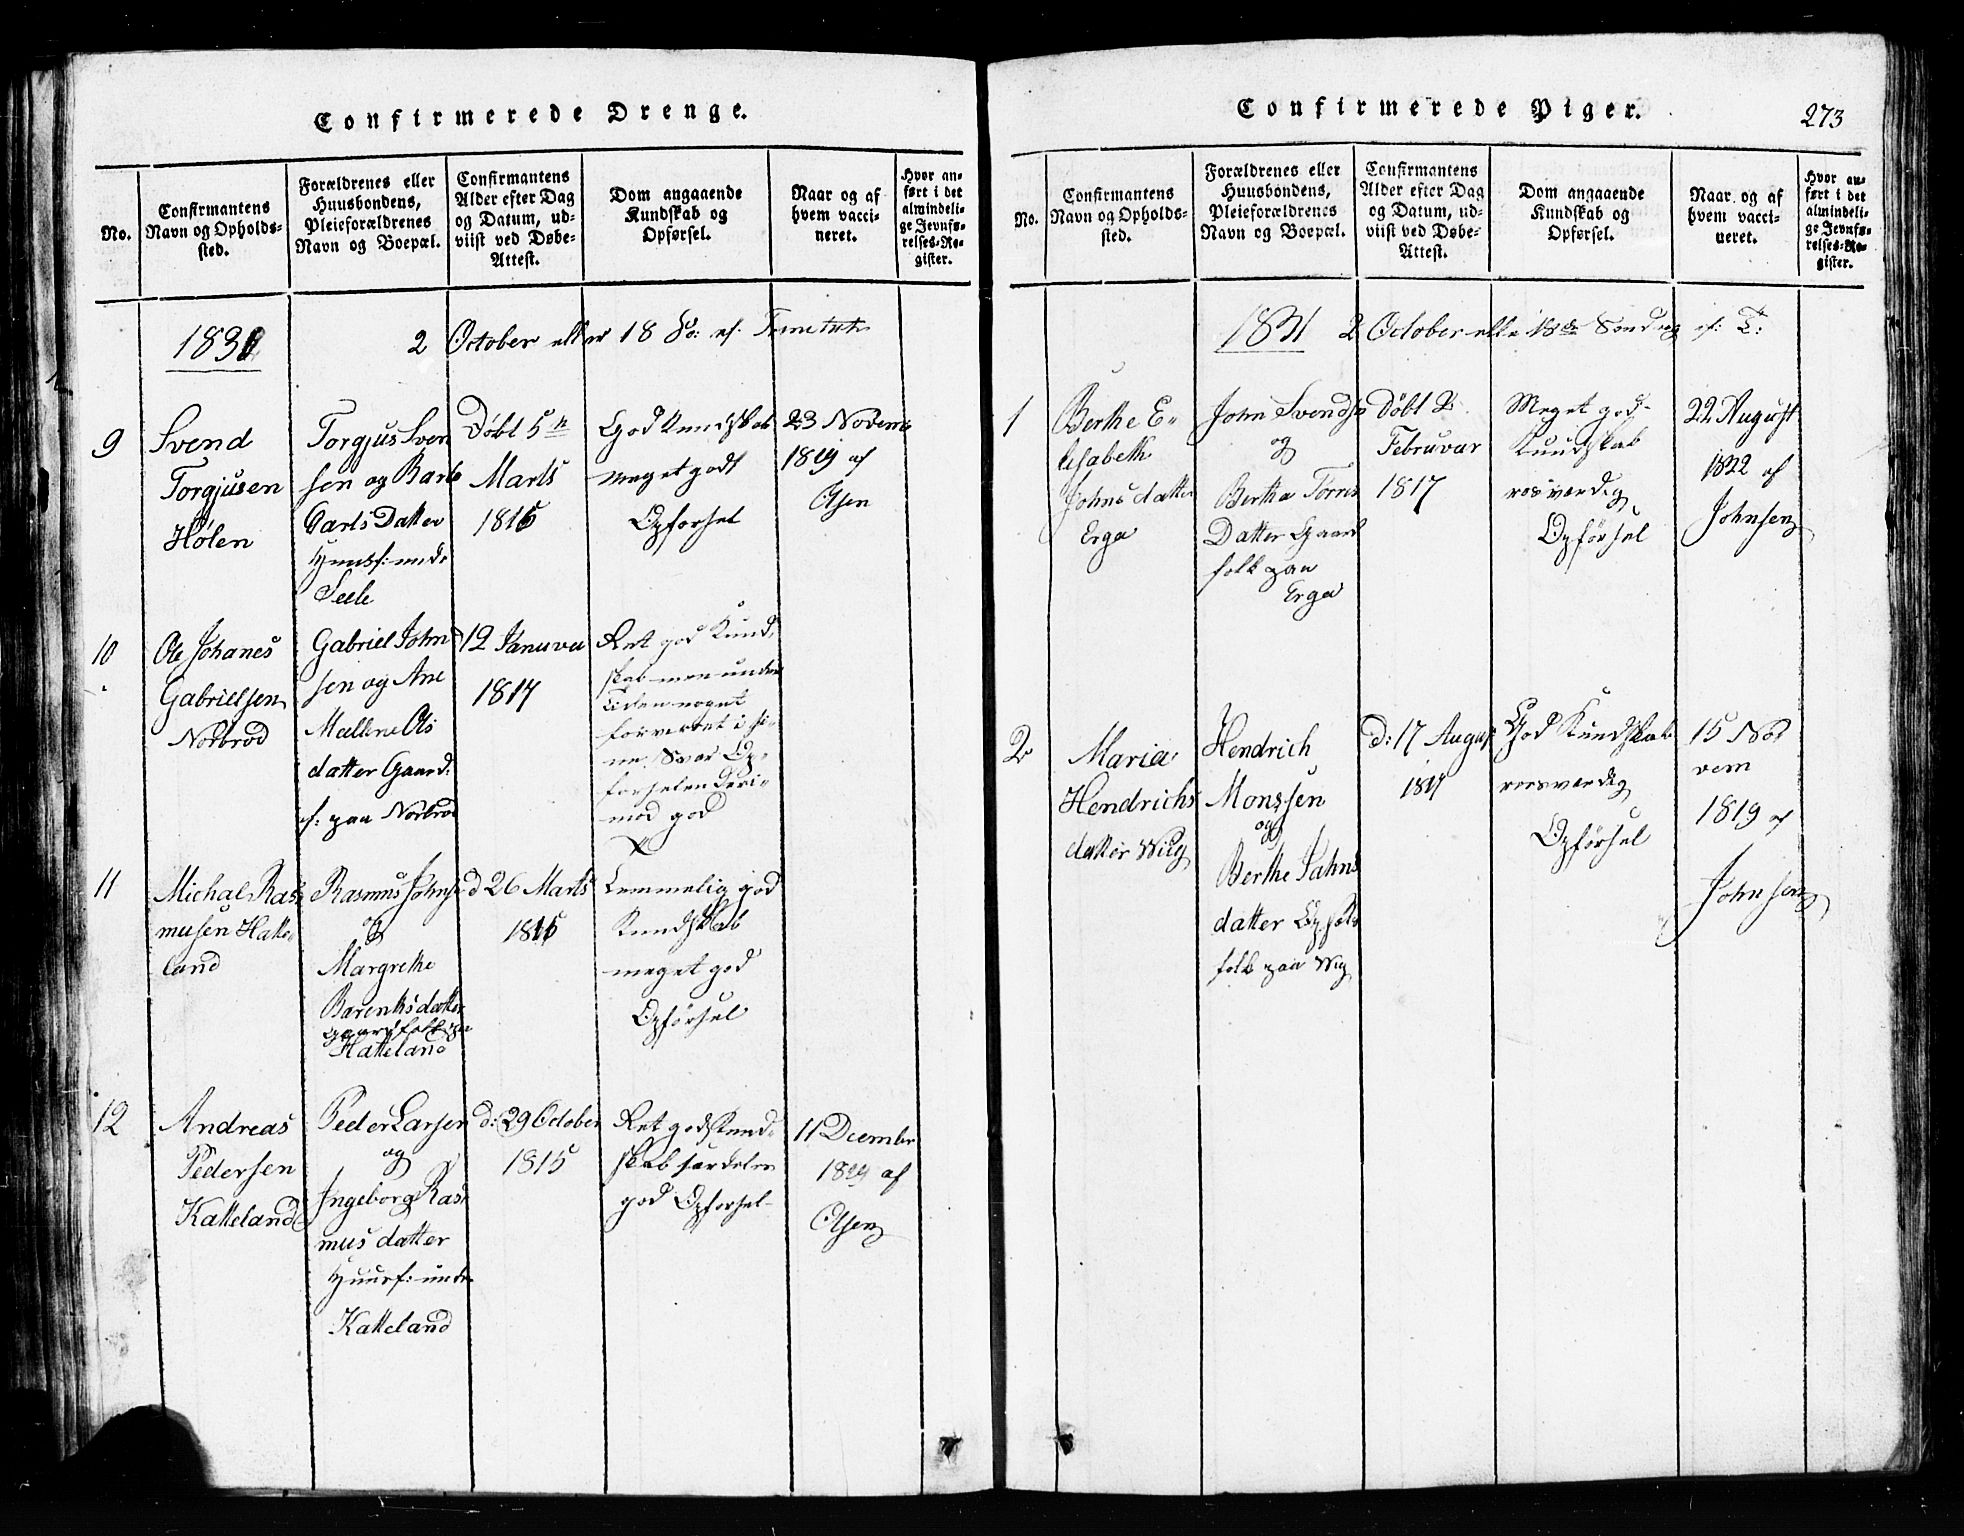 Confirmerede Drenge.
No.
Confirmantens
Navn og Opholds-
sted.
Forældrenes eller
Huusbondens,
Pleieforældrenes
Navn og Boepæl.
Confirmantens
Alder efter Dag
og Datum, ud-
viist ved Døbe-
Attest.
Dom angaaende
Kundskab og
Opførsel.
Naar og af
hvem vacci-
neret.
Hvor an-
ført i det
almindeli-
ge Jevnfø-
relses-Re-
gister.
1831
2 October eller 18 So: ef. Trinitatis
9
Svend
Torgjusen
Hølen
Torgjus Sven
sen og Barb
Carls Datter
Huusf: unde
Seele
Døbt 5te
Marts
1815
God Kundskab
meget godt
Opførsel
23 Novem
1819 af
Olsen
10
Ole Johanes
Gabrielsen
Norbrød
Gabriel John
sen og Ane
Malene Ols
datter Gaard:
f: paa Norbrød
d 12 Januva
1817
Ret god Kund,
skab men under
Tiden noget
forvirret i si-
ne Svar Op-
førselen deri-
mod god
11
Michal Ras
musen Hatte-
land
Rasmus Johnse
og
Margrethe
Barentsdatter
Gaardfolk paa
Hatteland
d 26 Marts
1815
Temmelig god
Kundskab
meget god
Opførsel
12
Andreas
Pedersen
Katteland
Peder Larsen
og
Ingeborg Ras
mus datter
Huusf: unde
Katteland
d: 29 October
1815
Ret god Kund-
skab særdeles
god Opførsel-
11 Decembr
18 af
Olsen
Confirmerede Piger.
273
No.
Confirmantens
Navn og Opholds-
sted.
Forældrenes eller
Huusbondens,
Pleieforældrenes
Navn og Boepæl.
Confirmantens
Alder efter Dag
og Datum, ud-
viist ved Døbe-
Attest.
Dom angaaende
Kundskab og
Opførsel.
Naar og af
hvem vacci-
neret.
Hvor an-
ført i det
almindeli-
ge Jevnfø-
relses-Re-
gister.
1831 2 October elle 18de Søndag ef: T:
1
Berthe E-
lisabeth
Johns datter
Erga
John Svends
og
Bertha Torres
Datter Gaard
folk paa
Erga
Døbt 2
Februvar
1817
Meget god-
Kundskab
rosværdig
Opførsel
22 August
1822 af
Johnsen
2
Maria
Hendrichs
datter Wiig
Hendrich
Monssen
og
Berthe Jahns
datter
folk paa Wiig
d: 17 August
1817
God Kundskab
rosværdig
Opførsel
15 No
vem
1819 af
Johnsen